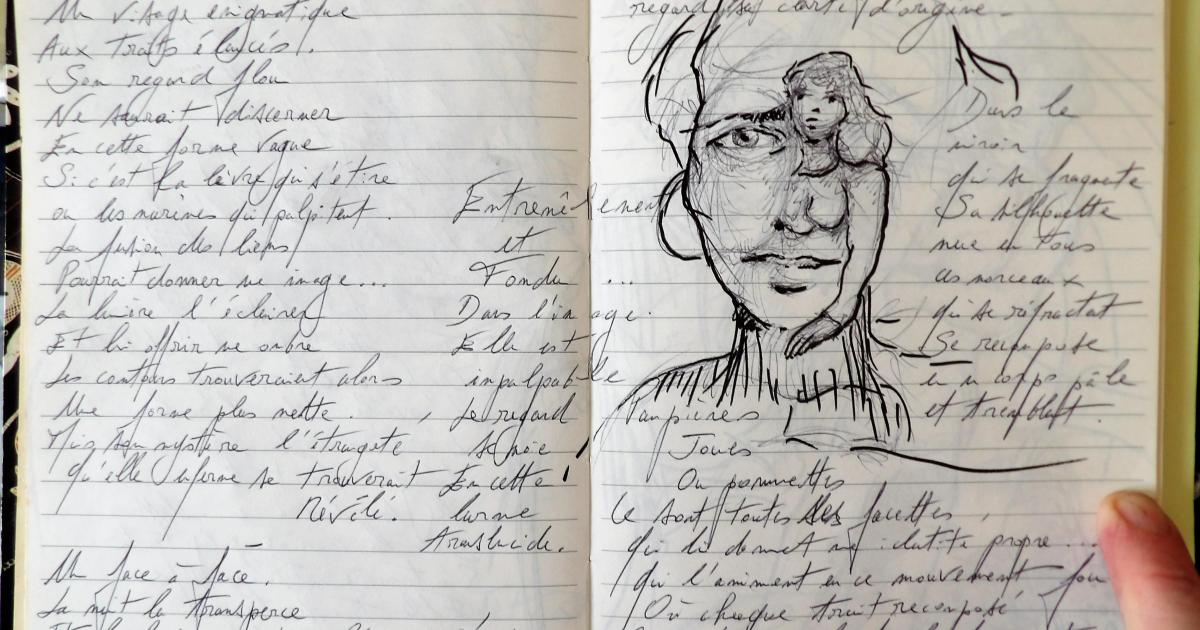 Un visage énigmatique
Aux traits élancés.
Son regard flou
Ne saurait discerner
En cette forme vague
Si c'est la lèvre qui s'étire
ou les narines qui palpitent.
La fusion des liens
Pourrait donner une image...
La lumière l'éclairer
Et lui offrir une ombre
Les contours trouveraient alors
Une forme plus nette.
Mais son mystère l'étrangeté
qu'elle renferme se trouverait
Révélé.
Un face à face.
La nuit la transperce
Entremêlement
et
Fondu ...
Dans l'image.
Elle est
impalpable
Le regard
se noie
En cette
larme
translucide.
regard sa clarté d'origine.
Dans le
miroir
qui se fragmente
Sa silhouette
nue en tous
ces morceaux
qui se réfractent
Se recompose
en un corps pâle
et tremblant.
Paupières
Joues
Ou pommettes
Ce sont toutes les facettes,
qui lui donnent une identité propre...
qui l'animent en ce mouvement fou
Où chaque trait recomposé